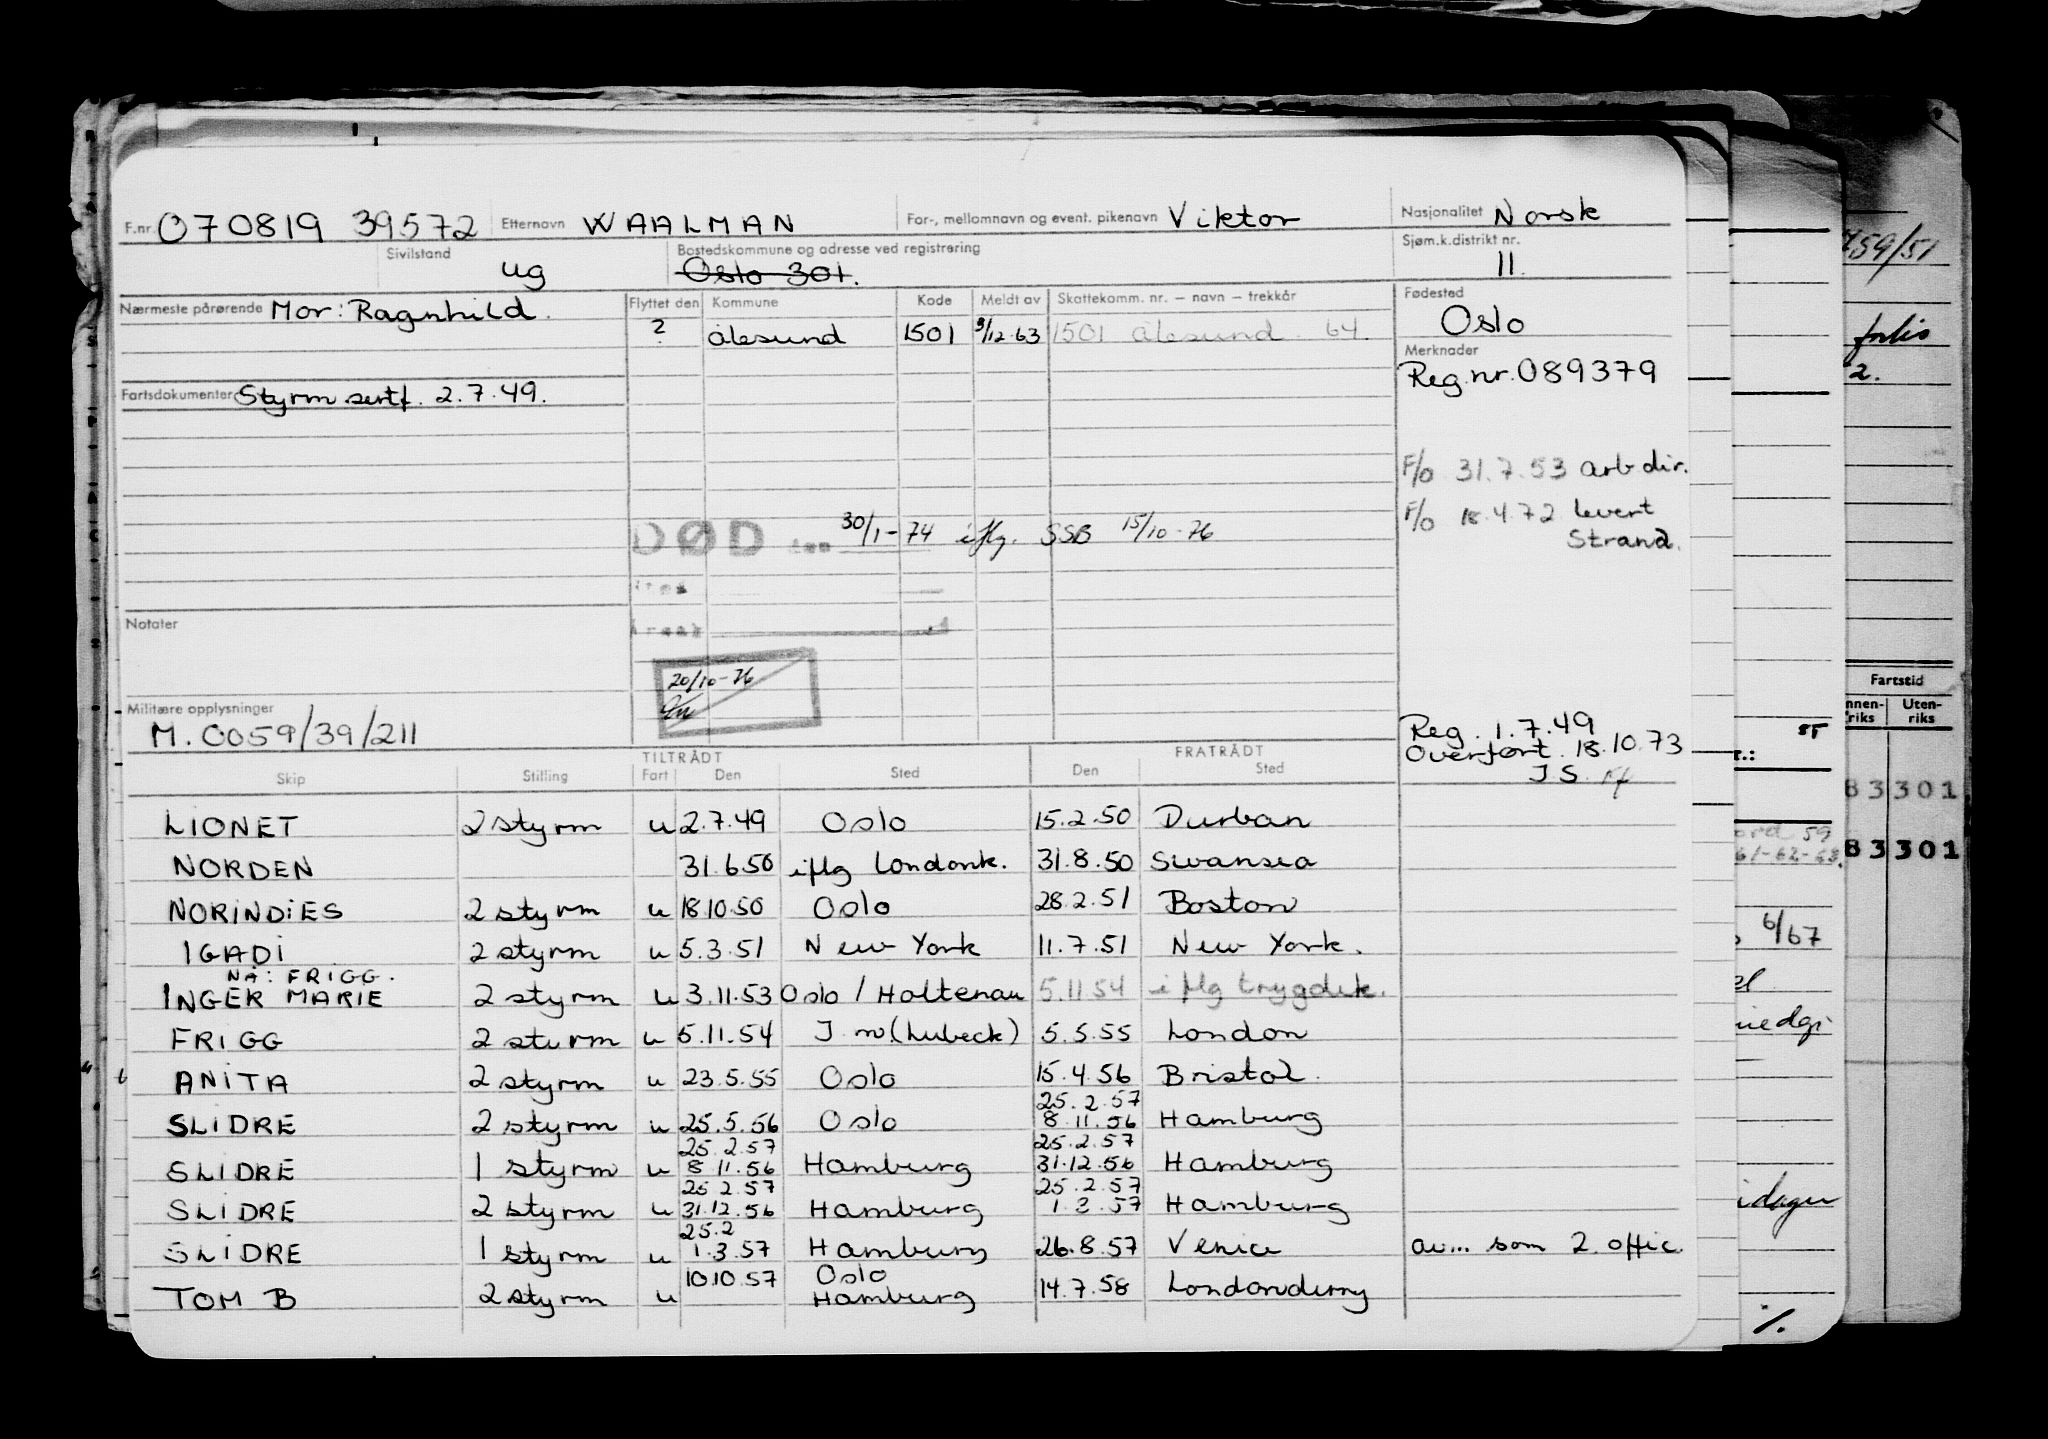 F.nr. 070819 39572 Etternavn WAALMAN For-, mellomnavn og event. pikenavn Viktor Nasjonalitet Norsk
Sivilstand ug Bostedskommune og adresse ved registrering Oslo 301. Sjøm.k.distrikt nr. 11
Nærmeste pårørende Mor: Ragnhild. Flyttet den Kommune Kode Meldt av Skattekomm. nr. – navn – trekkår Fødested
? Ålesund 1501 9/12.63 1501 Ålesund. 64. Oslo
Merknader
Reg.nr. 089379
Fartsdokumenter Styrm sertf. 2.7.49.
F/o 31.7.53 arb dir.
F/o 18.4.72 levert
Strand.
DØD den 30/1-74 iflg. SSB 15/10-76
Notater
20/10-76
Militære opplysninger
M.0059/39/211
Reg. 1.7.49
Overført. 18.10.73
J S.
TILTRÅDT FRATRÅDT
Skip Stilling Fart Den Sted Den Sted
LIONET 2 styrm u 2.7.49 Oslo 15.2.50 Durban
NORDEN 31.6.50 iflg Londonk. 31.8.50 Swansea
NORINDIES 2 styrm u 18.10.50 Oslo 28.2.51 Boston
IGADI 2 styrm u 5.3.51 New York 11.7.51 New York.
NÅ: FRIGG.
INGER MARIE 2 styrm u 3.11.53 Oslo / Holtenau 5.11.54 iflg trygdek.
FRIGG 2 styrm u 5.11.54 J. m (Lubeck) 5.5.55 London
ANITA 2 styrm u 23.5.55 Oslo 15.4.56 Bristol.
25.2.57
SLIDRE 2 styrm u 25.5.56 Oslo 8.11.56 Hamburg
25.2.57 25.2.57
SLIDRE 1 styrm u 8.11.56 Hamburg 31.12.56 Hamburg
25.2.57 25.2.57
SLIDRE 2 styrm u 31.12.56 Hamburg 1.3.57 Hamburg
25.2
SLIDRE 1 styrm u 1.3.57 Hamburg 26.8.57 Venice av... som 2. offic.
10.10.57 Oslo
TOM B 2 styrm u Hamburg 14.7.58 Londonderry
59/51
folio
2.
Fartstid
Innen-riks Uten-riks
83301
59
61-62-63.
83301
6/67
%.